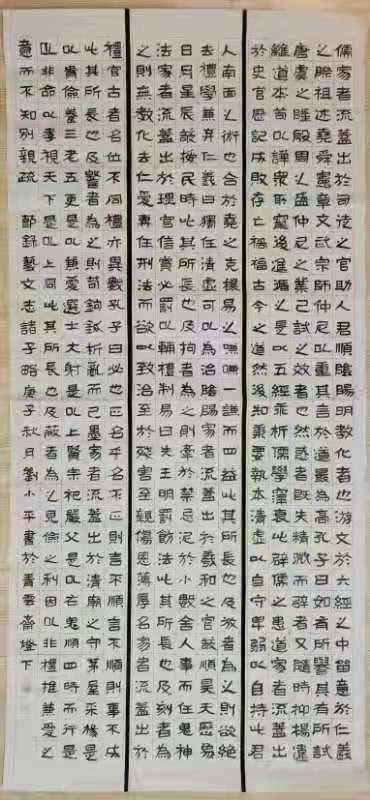 儒家者流蓋出於司徒之官助人君順陰陽明教化者也游文於六經之中留意於仁義
之際祖述堯舜憲章文武宗師仲尼以重其言於道最為高孔子曰如有所譽其有所試
唐虞之隆殷周之盛仲尼之業已試之效者也然惑者既失精微而辟者又隨時抑揚違
離道本苟以譁眾取寵後進循之是以五經乖析儒學寖衰此辟儒之患道家者流蓋出
於史官歷記成敗存亡禍福古今之道然後知秉要執本清虛以自守卑弱以自持此君
人南面之術也合於堯之克攘易之嗛嗛一謙而四益此其所長也及放者為之則欲絕
去禮學兼棄仁義曰獨任清虛可以為治陰陽家者流蓋出於羲和之官敬順昊天歷象
日月星辰敬授民時此其所長也及拘者為之則牽於禁忌泥於小數舍人事而任鬼神
法家者流蓋出於理官信賞必罰以輔禮制易曰先王以明罰飭法此其所長也及刻者為
之則無教化去仁愛專任刑法而欲以致治至於殘害至親傷恩薄厚名家者流蓋出於
禮官古者名位不同禮亦異數孔子曰必也正名乎名不正則言不順言不順則事不成
此其所長也及譥者為之則苟鉤釽析亂而已墨家者流蓋出於清廟之守茅屋采椽是
以貴儉養三老五更是以兼愛選士大射是以上賢宗祀嚴父是以右鬼順四時而行是
以非命以孝視天下是以上同此其所長也及蔽者為之見儉之利因以非禮推兼愛之
意而不知別親疏 節錄藝文志諸子略庚子秋月劉小平書於青雲齋燈下